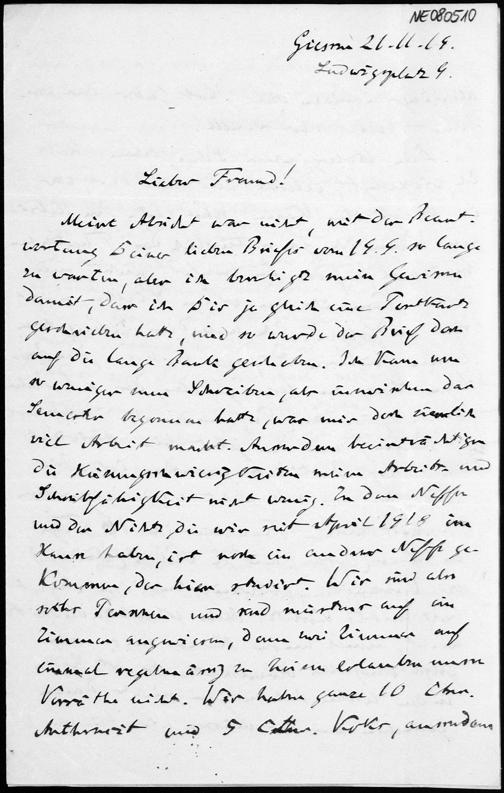 NE080510
Giessen 21.11.19.
Ludwigsplatz 9.
Lieber Freund!
Meine Absicht war nicht, mit der Beant-
wortung Deines lieben Briefes vom 19.9. so lange
zu warten, aber ich beruhigte mein Gewissen
damit, dass ich Dir ja gleich eine Postkarte
geschrieben hatte, und so wurde der Brief doch
auf die lange Bank geschoben. Ich kam um
so weniger zum Schreiben, als inzwischen das
Semester begonnen hatte, was mir doch ziemlich
viel Arbeit macht. Ausserdem beeinträchtigen
die Heizungsschwierigkeiten meine Arbeits- und
Schreibfähigkeit nicht wenig. Zu dem Neffen
und der Nichte, die wir seit April 1918 im
Hause haben, ist noch ein anderer Neffe ge-
kommen, der hier studiert. Wir sind also
Personen und sind meistens auf ein
Zimmer angewiesen, denn zwei Zimmer auf
einmal regelmässig zu heizen erlauben unsere
Vorräthe nicht. Wir haben ganze 10 Ctnr.
Anthrazit und 5 Ctnr. Koks, ausserdem